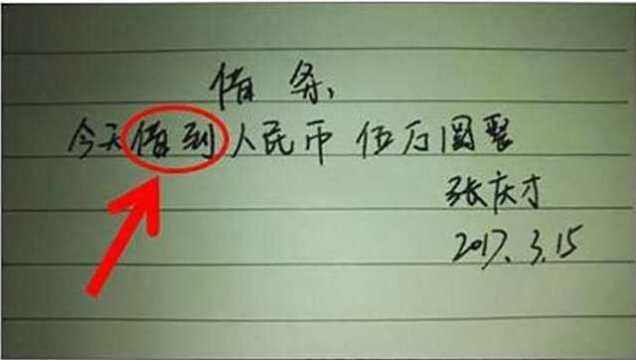 借条,
今天借到人民币 伍万圆整
张庆才
2017.3.15